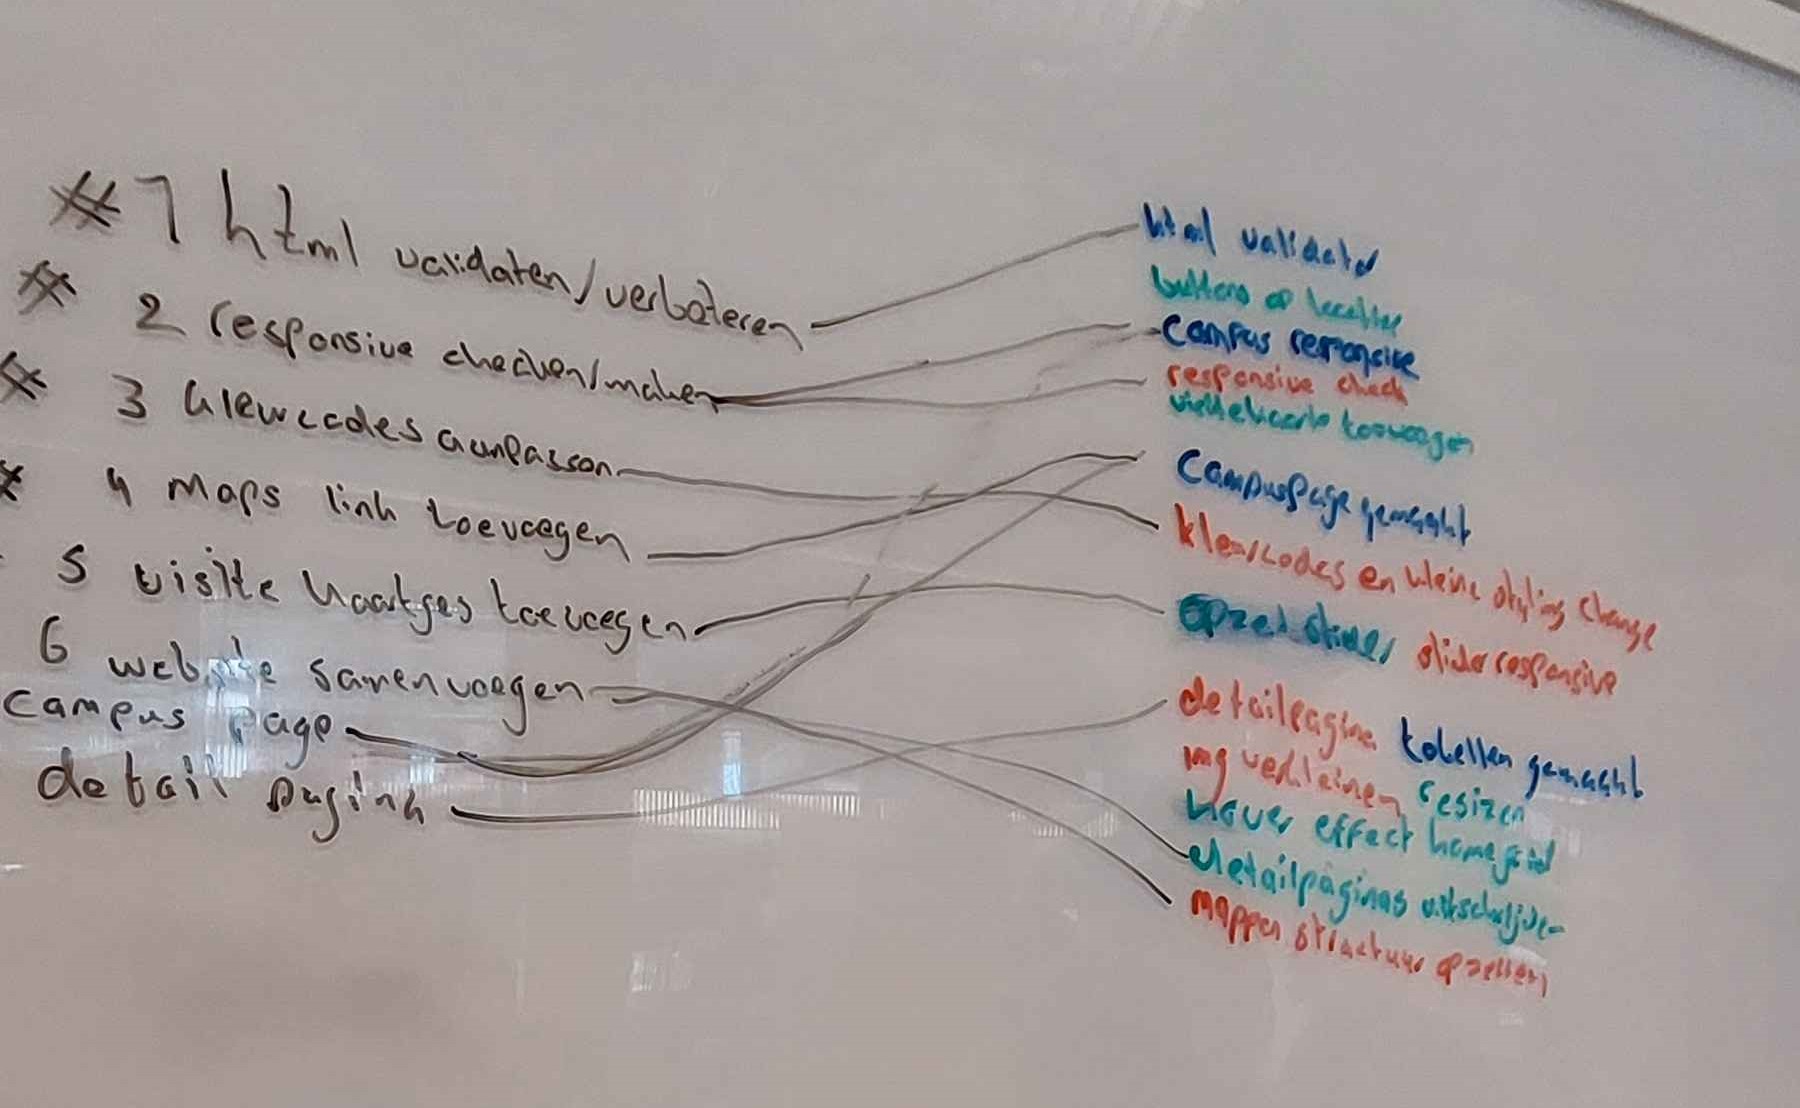 # 1 html validaten/verbeteren
# 2 responsive checken/maken
# 3 kleurcodes aanpassen
# 4 Maps link toevoegen
5 visite kaartjes toevoegen
6 website samenvoegen
campus page
detail pagina
html validator
buttons op
campus responsive
responsive check
toevoegen
Campuspage gemaakt
kleurcodes en kleine styling change
opzet slider responsive
detailpagina tabellen gemaakt
img verkleinen resizen
hover effect homegrid
detailpaginas uitschrijven
mappen structuur opzetten